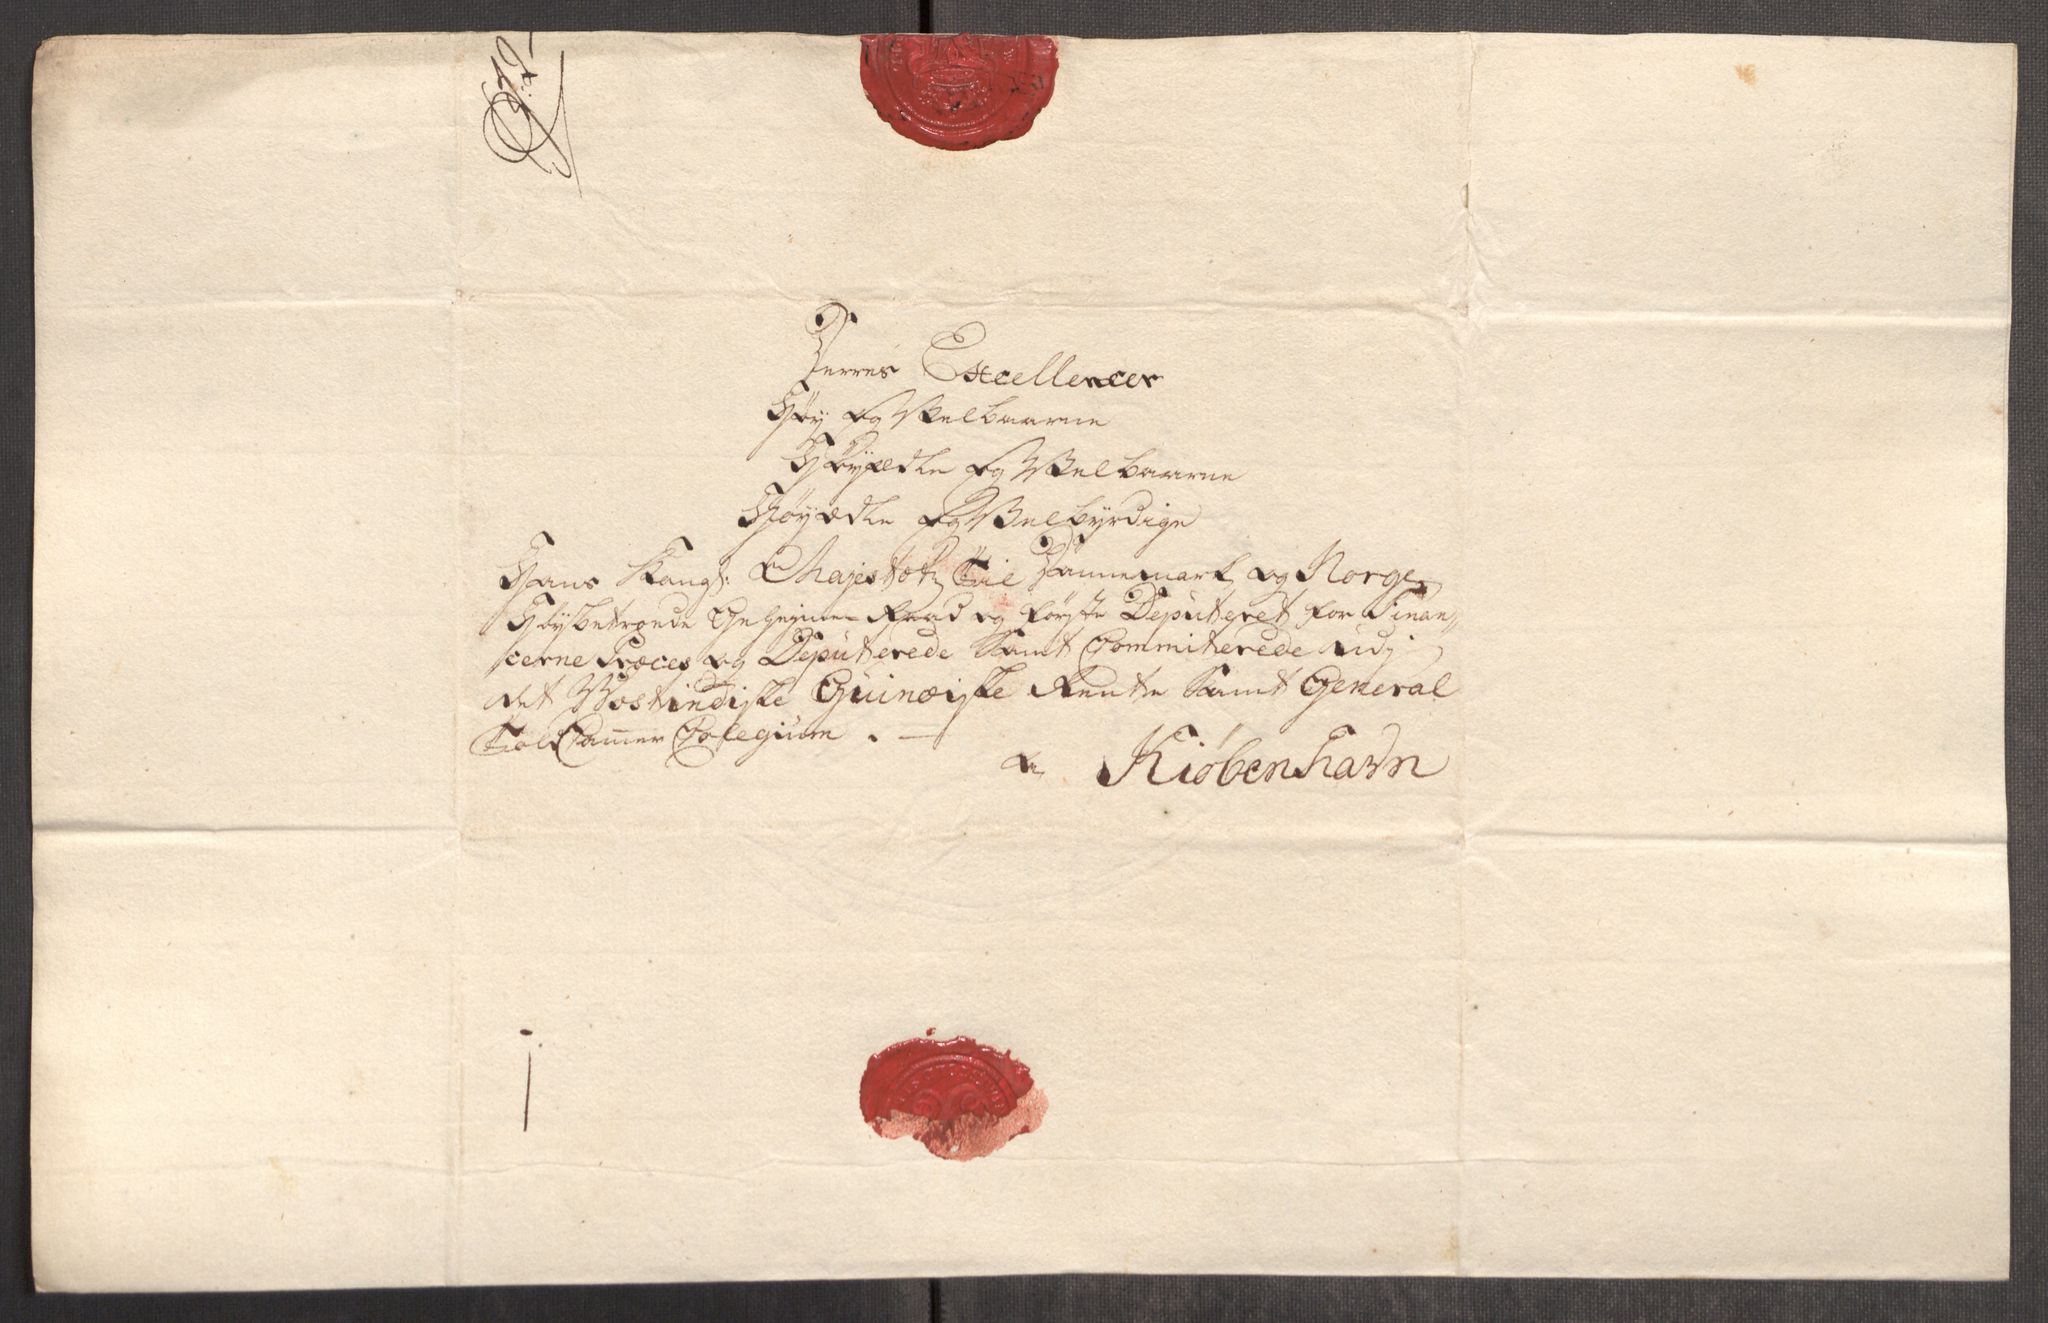 Deres Excellencer
Høy og Velbaarne
Høyædle og Velbaarne
Høyædle og Velbyrdige
Hans Kongl: Majestæts til Dannemark og Norge
Høybetroede Geheime-Raad og første Deputeret for Finan-
cerne Præces og Deputerede Samt Committerede udj
det Vestindiske Guinæiske Rente Samt General
Told Cammer Colegium. —
a Kiøbenhavn